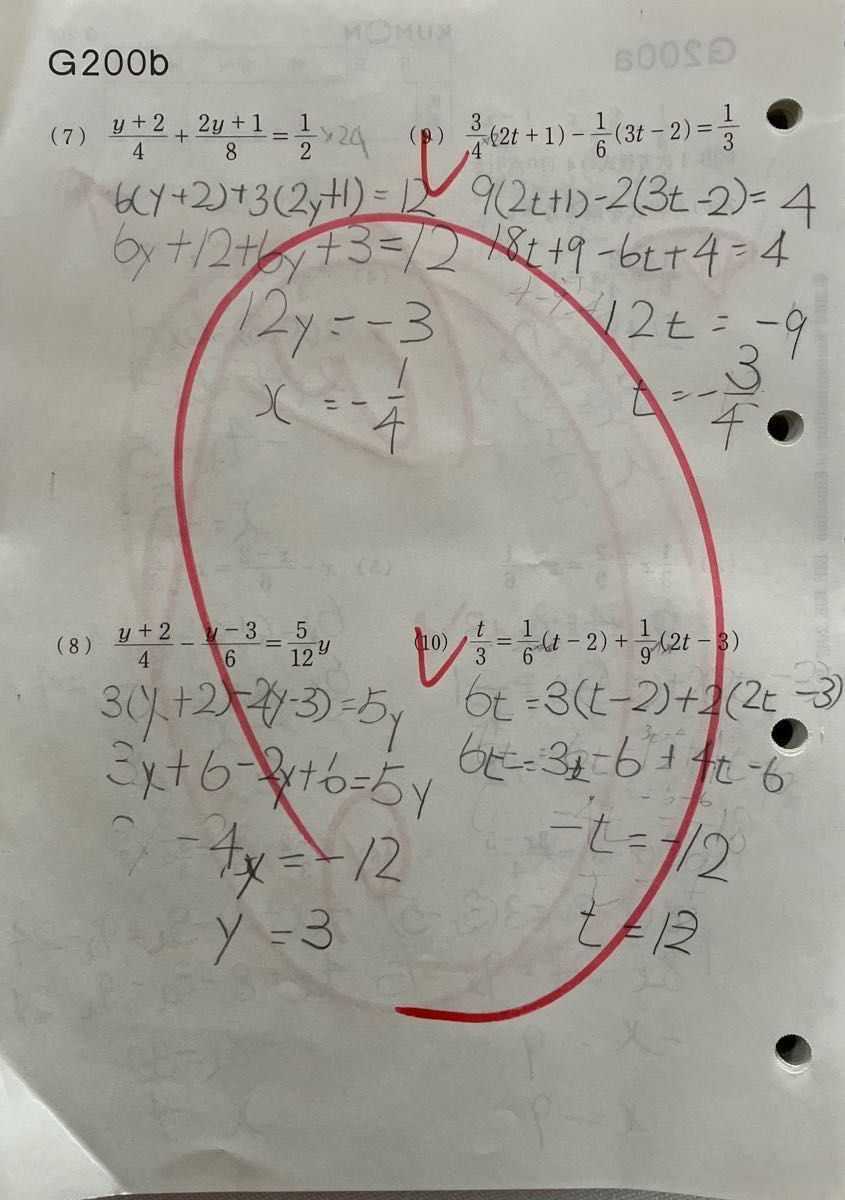 G200b
(7) (y+2)/4 + (2y+1)/8 = 1/2 ×24
6(y+2)+3(2y+1)=12
6y+12+6y+3=12
12y=-3
x=-1/4
(8) (y+2)/4 - (y-3)/6 = 5/12 y
3(y+2)-2(y-3)=5y
3y+6-2y+6=5y
-4y=-12
y=3
(9) 3/4(2t+1) - 1/6(3t-2) = 1/3
9(2t+1)-2(3t-2)=4
18t+9-6t+4=4
12t=-9
t=-3/4
(10) t/3 = 1/6(t-2) + 1/9(2t-3)
6t=3(t-2)+2(2t-3)
6t=3t-6+4t-6
-t=-12
t=12